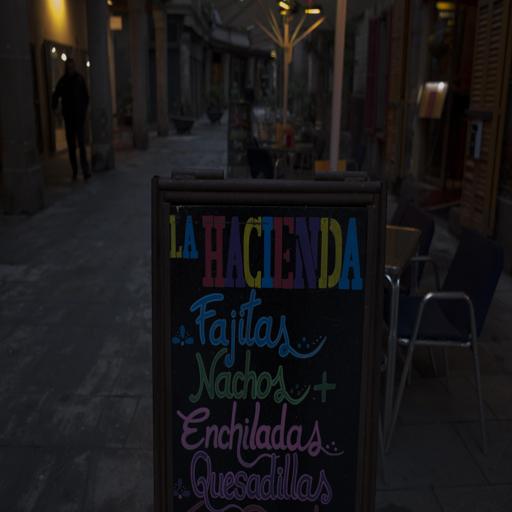 LA HACIENDA
Fajitas
Nachos +
Enchiladas
Quesadillas